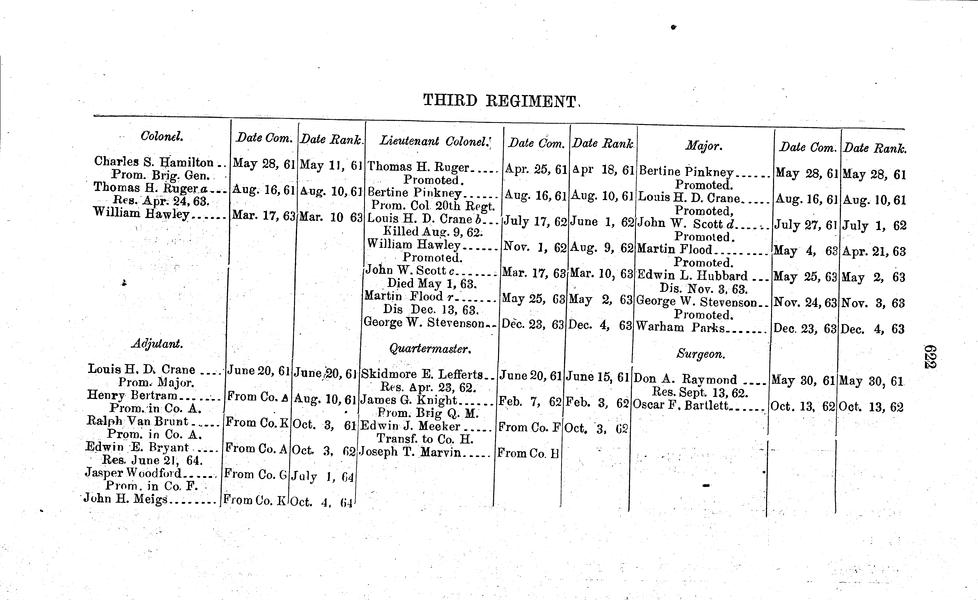 THIRD REGIMENT.
Colonel. Date Com. Date Rank. Lieutenant Colonel. Date Com. Date Rank Major. Date Com. Date Rank.
Charles S. Hamilton .. May 28, 61 May 11, 61 Thomas H. Ruger..... Apr. 25, 61 Apr 18, 61 Bertine Pinkney...... May 28, 61 May 28, 61
Prom. Brig. Gen. Promoted. Promoted.
Thomas H. Ruger a... Aug. 16, 61 Aug. 10, 61 Bertine Pinkney...... Aug. 16, 61 Aug. 10, 61 Louis H. D. Crane..... Aug. 16, 61 Aug. 10, 61
Res. Apr. 24, 63. Prom. Col. 20th Regt. Promoted,
William Hawley...... Mar. 17, 63 Mar. 10 63 Louis H. D. Crane b... July 17, 62 June 1, 62 John W. Scott d...... July 27, 61 July 1, 62
Killed Aug. 9, 62. Promoted.
William Hawley...... Nov. 1, 62 Aug. 9, 62 Martin Flood........ May 4, 63 Apr. 21, 63
Promoted. Promoted.
John W. Scott c....... Mar. 17, 63 Mar. 10, 63 Edwin L. Hubbard ... May 25, 63 May 2, 63
Died May 1, 63. Dis. Nov. 3, 63.
Martin Flood r....... May 25, 63 May 2, 63 George W. Stevenson.. Nov. 24, 63 Nov. 3, 63
Dis Dec. 13, 63. Promoted.
George W. Stevenson.. Dec. 23, 63 Dec. 4, 63 Warham Parks....... Dec. 23, 63 Dec. 4, 63
Adjutant. Quartermaster. Surgeon.
622
Louis H. D. Crane .... June 20, 61 June 20, 61 Skidmore E. Lefferts.. June 20, 61 June 15, 61 Don A. Raymond .... May 30, 61 May 30, 61
Prom. Major. Res. Apr. 23, 62. Res. Sept. 13, 62.
Henry Bertram....... From Co. A Aug. 10, 61 James G. Knight...... Feb. 7, 62 Feb. 3, 62 Oscar F. Bartlett...... Oct. 13, 62 Oct. 13, 62
Prom. in Co. A. Prom. Brig Q. M.
Ralph Van Brunt..... From Co. K Oct. 3, 61 Edwin J. Meeker ..... From Co. F Oct. 3, 62
Prom. in Co. A. Transf. to Co. H.
Edwin E. Bryant ..... From Co. A Oct. 3, 62 Joseph T. Marvin..... From Co. H
Res. June 21, 64.
Jasper Woodford...... From Co. G July 1, 64
Prom. in Co. F.
John H. Meigs........ From Co. K Oct. 4, 64